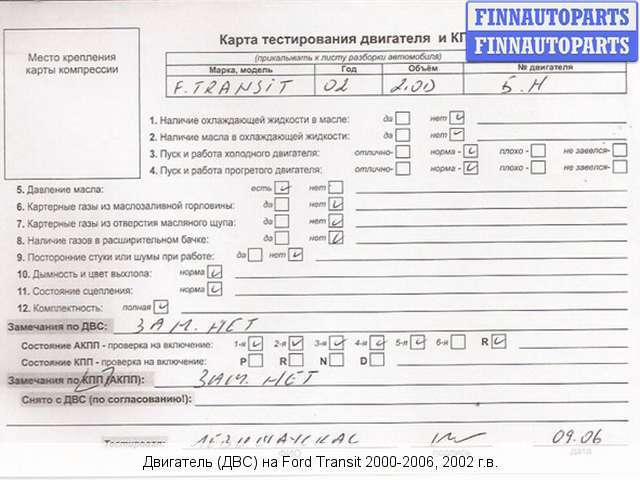 FINNAUTOPARTS
FINNAUTOPARTS
Карта тестирования двигателя и КП
(прикалывать к листу разборки автомобиля)
Место крепления
карты компрессии
Марка, модель Год Объём № двигателя
F. TRANSIT 02 2.00 Б.Н
1. Наличие охлаждающей жидкости в масле: да нет
2. Наличие масла в охлаждающей жидкости: да нет
3. Пуск и работа холодного двигателя: отлично- норма - плохо - не завелся-
4. Пуск и работа прогретого двигателя: отлично- норма - плохо - не завелся-
5. Давление масла: есть нет
6. Картерные газы из маслозаливной горловины: да нет
7. Картерные газы из отверстия масляного щупа: да нет
8. Наличие газов в расширительном бачке: да нет
9. Посторонние стуки или шумы при работе: да нет
10. Дымность и цвет выхлопа: норма
11. Состояние сцепления: норма
12. Комплектность: полная
Замечания по ДВС: ЗАМ. НЕТ
Состояние АКПП - проверка на включение: 1-я 2-я 3-я 4-я 5-я 6-я R
Состояние КПП - проверка на включение: P R N D
Замечания по КПП (АКПП): ЗАМ. НЕТ
Снято с ДВС (по согласованию!):
09.06
дата
Двигатель (ДВС) на Ford Transit 2000-2006, 2002 г.в.